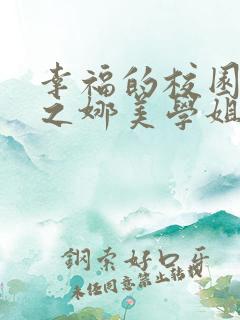 幸福的校园
之娜美学姐
钢索好口牙
未经同意禁止转载